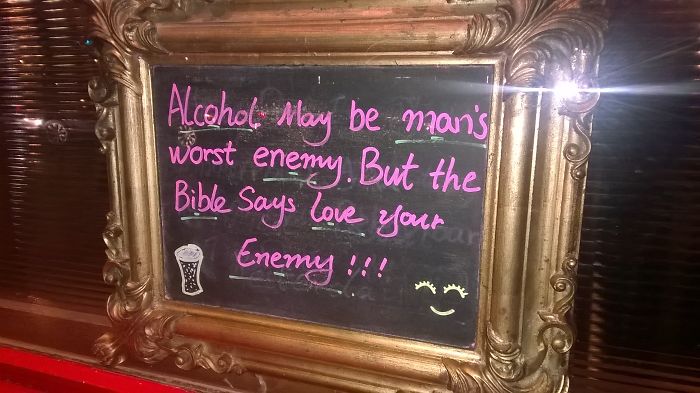 Alcohol May be man's
worst enemy. But the
Bible Says love your
Enemy !!!